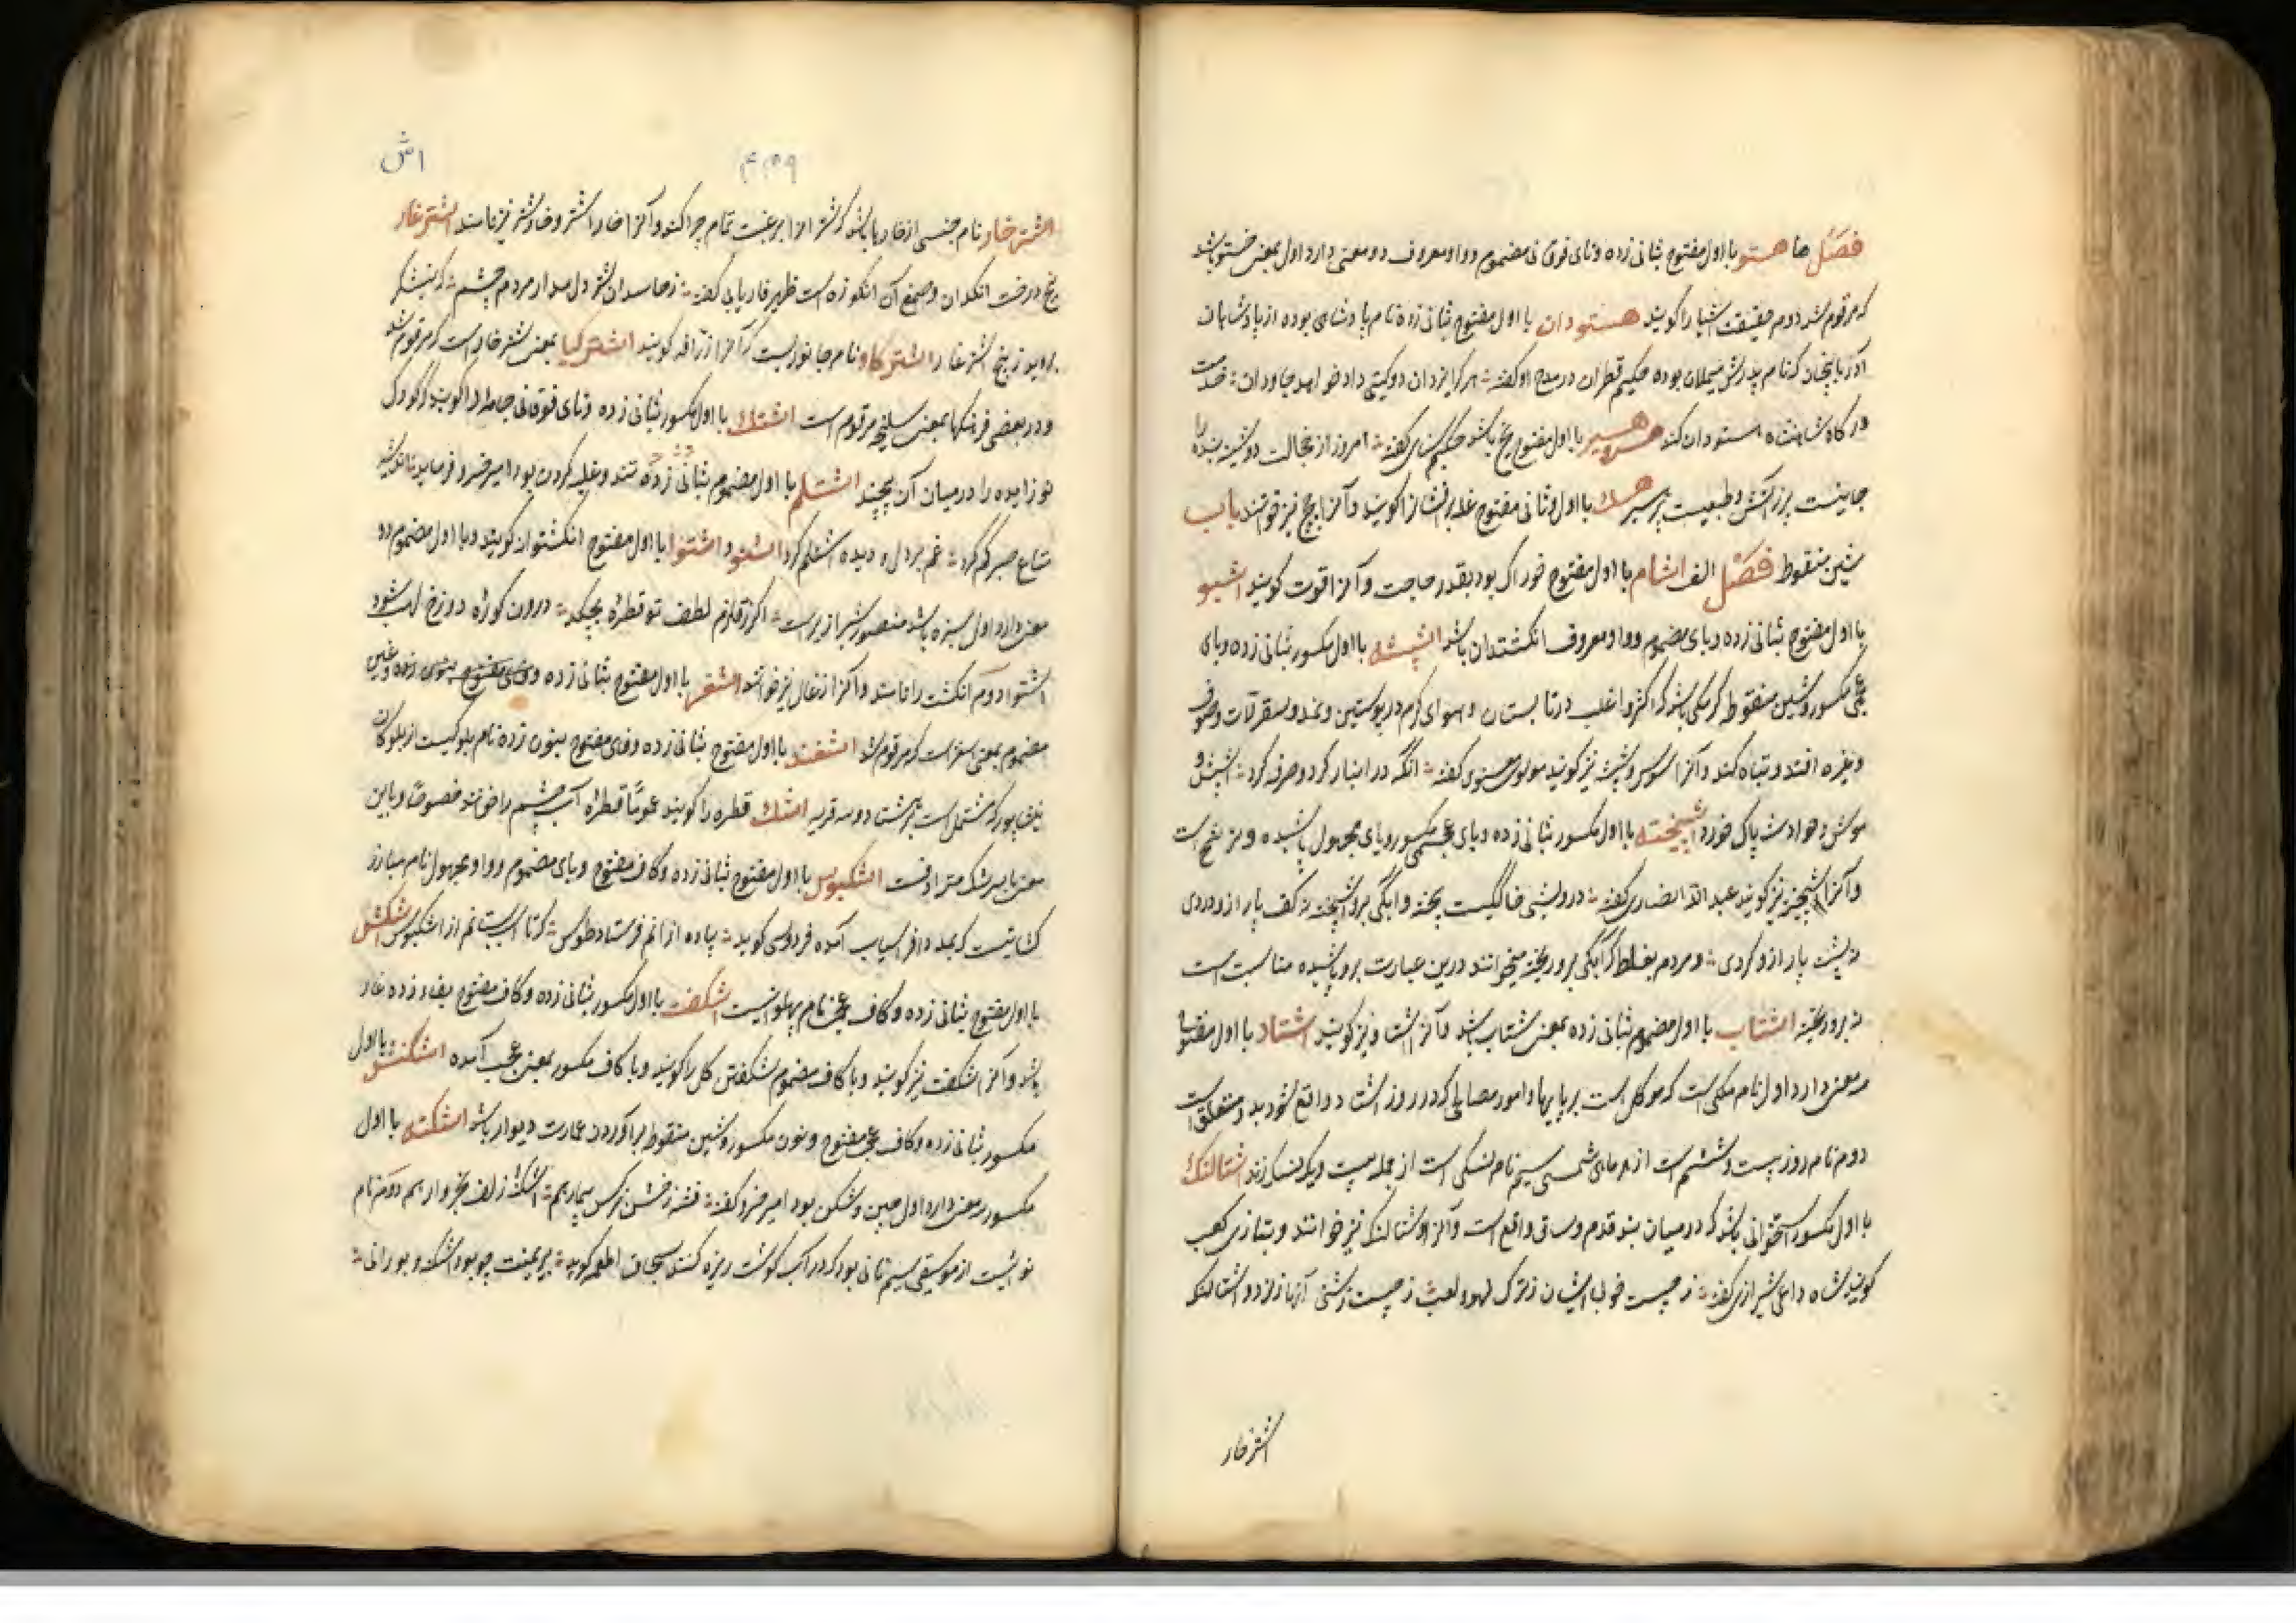 فصل ها هستو با اول مفتوح بثانی زده و تای فوقانی مضموم و واو معروف دو معنی دارد اول بمعنی خستو باشد
که مرقوم شد دوم حقیقت اشیا را گویند هستودان با اول مفتوح بثانی زده نام پادشاهی بوده از پادشاهان
آذربایجان که نام پدرش مملان بوده حکیم قطران در مدح او گفته هر کرا یزدان دو گیتی داد خواهد جاودان خدمت
درگاه شاهنشاه استودان کند هسیر با اول مفتوح یخ باشد حکیم سنای گفته امروز از خجالت دوشینه بنده را
جانیست پر ز آتش و طبعیست پر هسیر هسک با اول و ثانی مفتوح غله برافشان را گویند و آنرا چج نیز خوانند باب
شین منقوط فصل الف اشام با اول مفتوح خوراک بود بقدر حاجت و آنرا قوت گویند اشبو
با اول مفتوح بثانی زده و بای مضموم و واو معروف انگشتدان باشد اشپشه با اول مکسور بثانی زده و بای
عجمی مکسور و شین منقوط کرمکی باشد که اکثر و اغلب در تابستان و هوای گرم در پوستین و نمد و سقرلات و صوف
و غیره افتد و تباه کند و آنرا سوس و شپشه نیز گویند مولوی معنوی گفته آنکه در انبار کرد و صرفه کرد اشپش و
موش و حوادث پاک خورد اشپیخته با اول مکسور بثانی زده و بای عجمی مکسور و یای مجهول پاشیده و مرشح است
و آنرا اشپخته نیز گویند عبد الله انصاری گفته درویشی خاکیست بیخته و آبکی برو اشپیخته نه کف پا را ازو دردی
نه پشت پا را ازو گردی و مردم بغلط که آبکی برو ریخته میخوانند درین عبارت برو پاشیده مناسبست
نه برو ریخته اشتاب با اول مضموم بثانی زده بمعنی شتاب باشد و آنرا اشتاو نیز گویند اشتاد با اول مفتوح
سه معنی دارد اول نام ملکی است که موکل است بر پاییها و امور مصالحی که در روز اشتاد واقع شود بدو متعلق است
دوم نام روز بیست و ششم است از هر ماهی شمسی سیم نام نسکی است از جمله بیست و یک نسک زند اشتالنک
با اول مکسور استخوانی باشد که در میان بند قدم و ساق واقع است و آنرا شتالنگ نیز خوانند و بتازی کعب
گویند شاه داعی شیرازی گفته نه چیست خوب ایشان ز ترک لهو و لعب ز چیست زشتی آنها ز نرد و اشتالنک
اشترخار
اش
۴۳۹
اشترخار نام جنسی از خار باشد که شتر انرا برغبت تمام چرا کند و آنرا خار اشتر و خار شتر نیز نامند اشترغاز
بیخ درخت انگدان و صمغ آن انگوزه است ظهیر فاریابی گفته ز حاسدان شتر دل مدار مردم چشم که نیشکر
بروید ز بیخ اشترغاز اشترکاو نام جانوریست که آنرا زرافه گویند اشترکیا بمعنی اشترخار است که مرقوم شد
و در بعضی فرهنگها بمعنی سلیخه مرقوم است اشتک با اول مکسور بثانی زده و تای فوقانی جامه را گویند که کودک
نوزاییده را در میان آن پیچند اشتلم با اول مضموم بثانی زده تندی و غلبه کردن بود امیر خسرو فرماید ناله شد
متاع صبر گم کرد غم بر دل و دیده اشتلم کرد اشتو و اشتوا با اول مفتوح انگشتوان گویند و با اول مضموم دو
معنی دارد اول سبزه باشد منصور شیرازی راست اگر ز قلزم لطف تو قطره بچکد درون کوزه دوزخ لهب شود
اشتوا دوم انگشت را نامند و آنرا زغال نیز خوانند اشغر با اول مفتوح بثانی زده و غین
مضموم بمعنی اسغر است که مرقوم شد اشفند با اول مفتوح بثانی زده و فای مفتوح بنون زده نام بلوکیست از بلوکات
نیشابور که مشتمل است بر هشتاد و سه قریه اشک قطره را گویند عموماً و قطره آب چشم را خوانند خصوصاً و باین
معنی با سرشک مترادفست اشکبوس با اول مفتوح بثانی زده و کاف مفتوح و بای مضموم و واو مجهول نام مبارز
کشانیست که بمدد افراسیاب آمده فردوسی گوید پیاده از آنم فرستاد طوس که تا اسپ بستانم از اشکبوس اشکش
با اول مفتوح بثانی زده و کاف عجمی نام پهلوانیست اشکفت با اول مکسور بثانی زده و کاف مفتوح بفا زده غار
باشد و آنرا شکفت نیز گویند و با کاف مضموم شکفتن گل را گویند و با کاف مکسور بمعنی عجب آمده اشکنش با اول
مکسور بثانی زده و کاف عجمی مفتوح و نون مکسور و شین منقوط برآوردن عمارت دیوار باشد اشکنه با اول
مکسور سه معنی دارد اول چین و شکن بود امیر خسرو گفته فتنه ز چشم نرگس بیمار بهم اشکنه زلف بخروار بهم دوم نام
نوائیست از موسیقی سیم نانی بود که در آب گوشت ریزه کنند بسحاق اطعمه گوید بریمنت چو بود اشکنه و بورانی